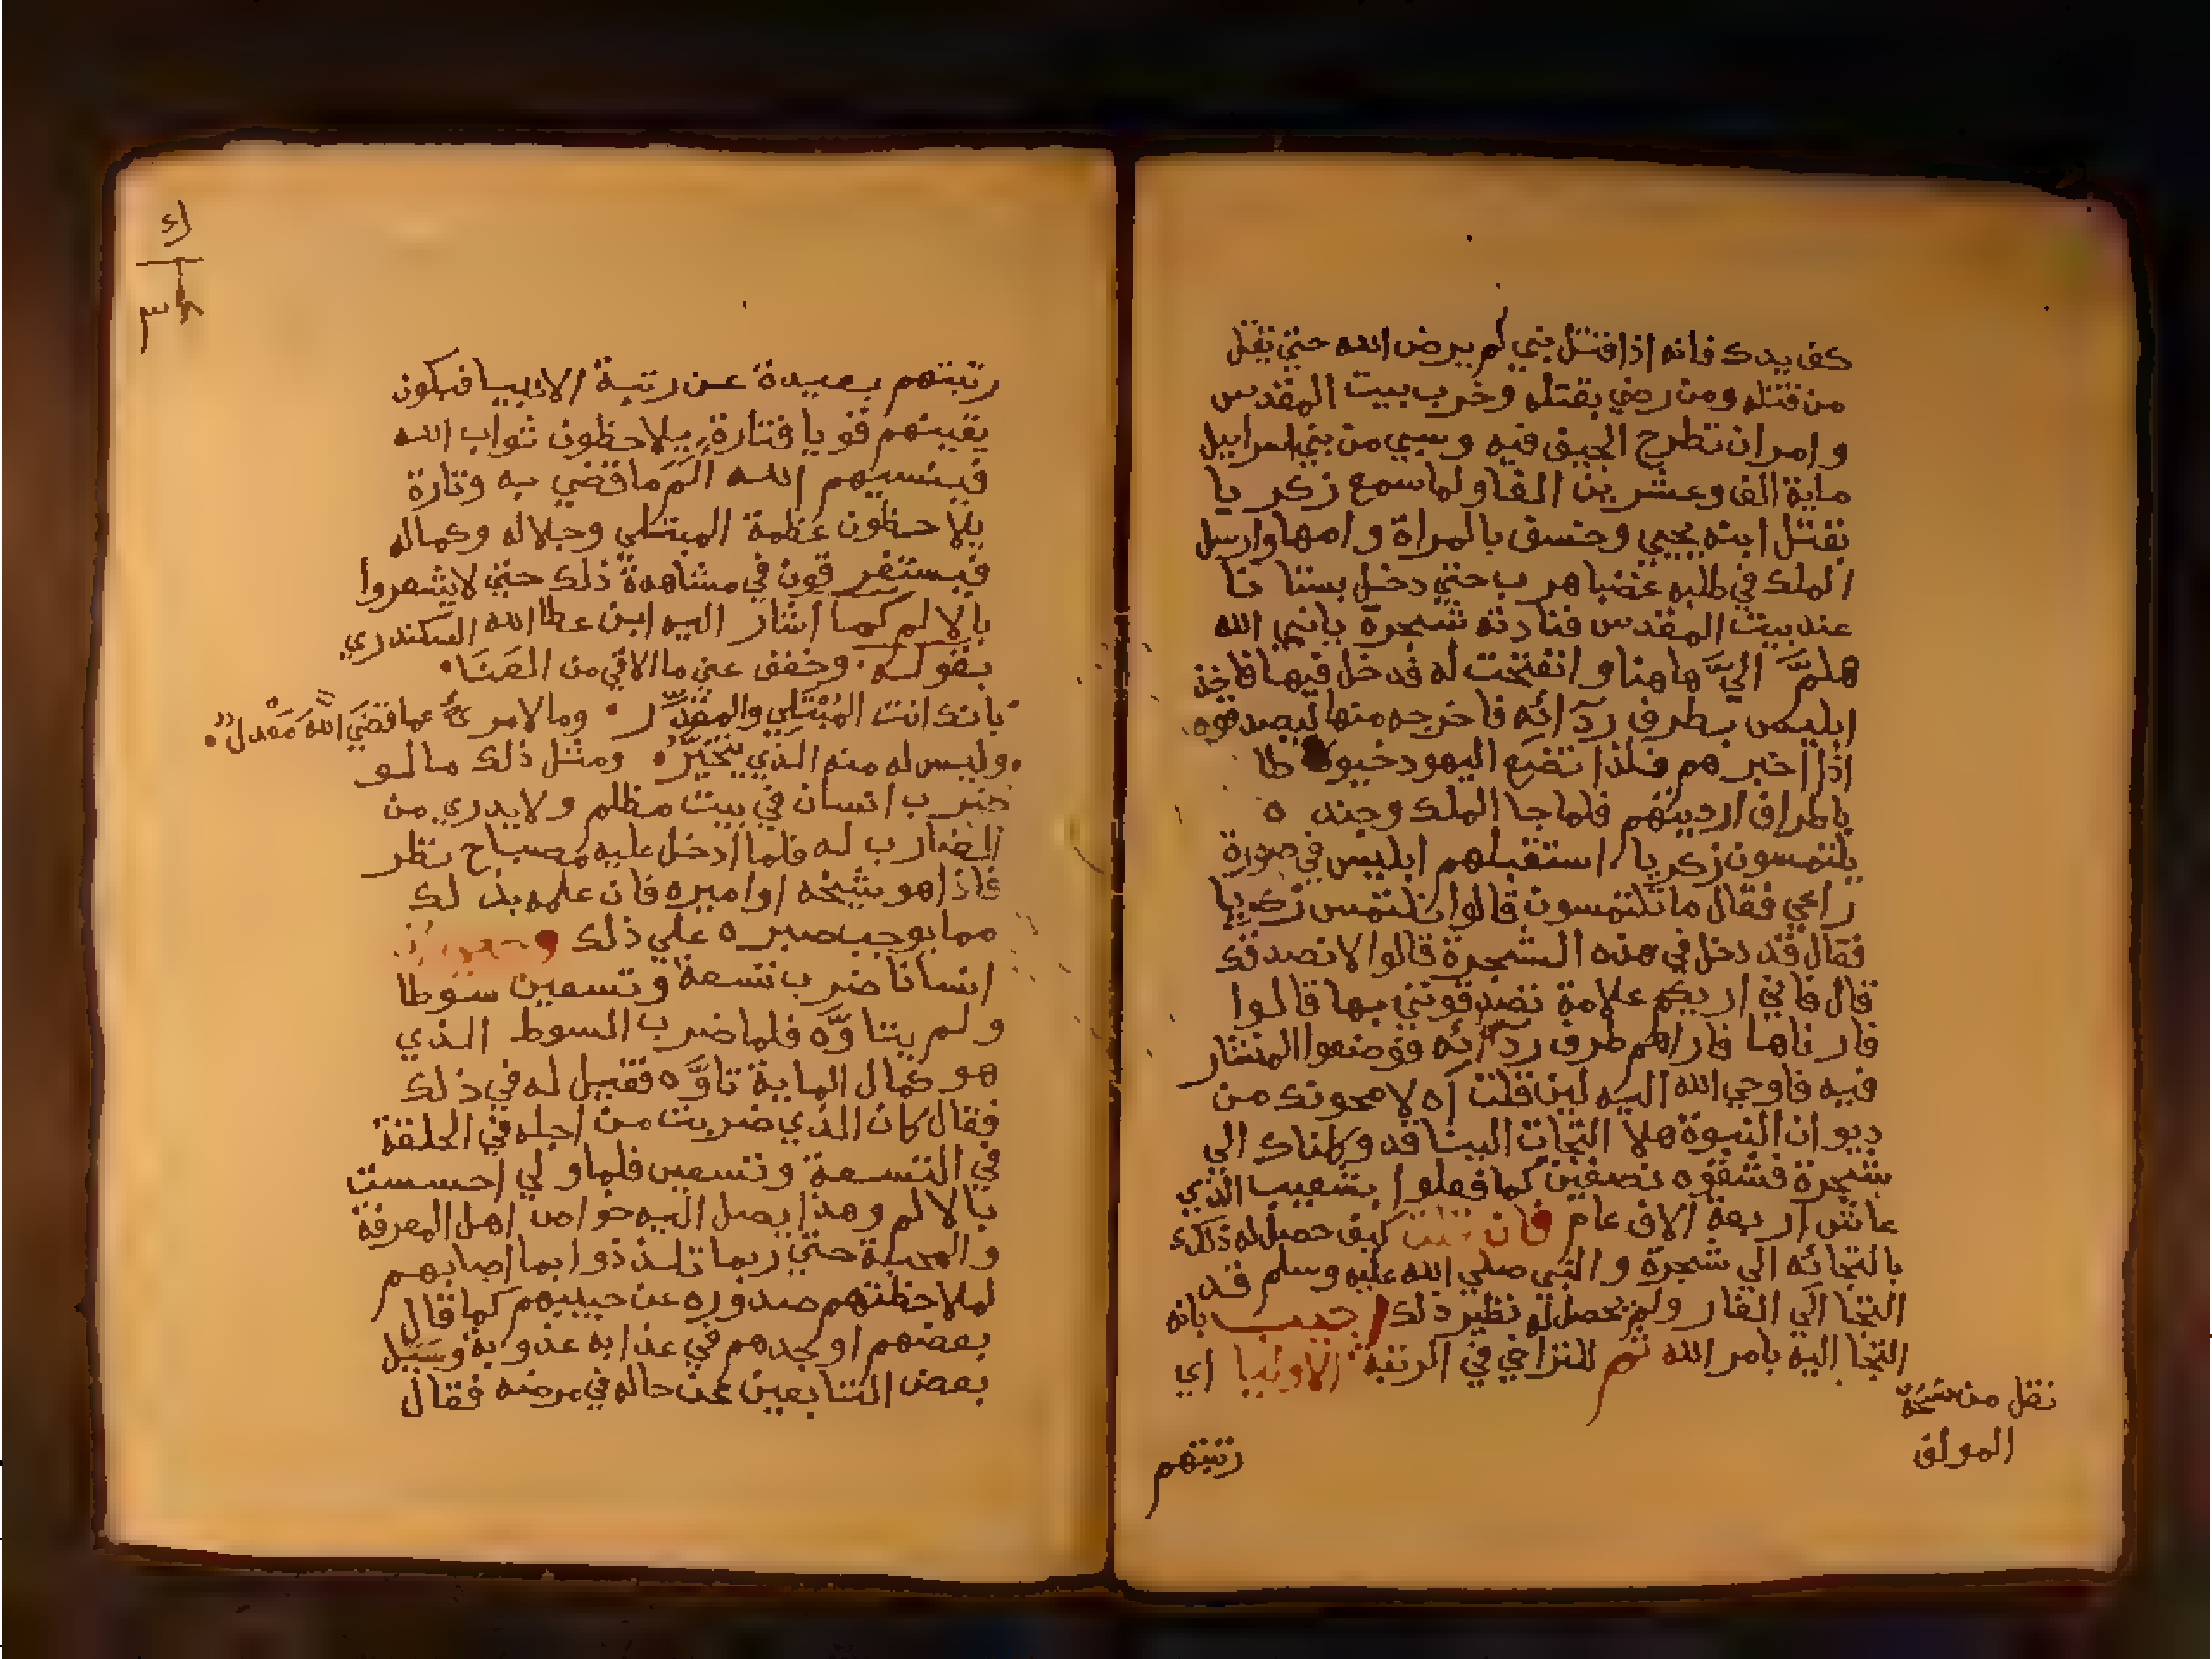 كف يدك فانه اذا قتل نبي لم يرض الله حتي يقتل
من قتله ومن رضي بقتله وخرب بيت المقدس
وامر ان تطرح الجيف فيه وسبي من بني اسراييل
ماية الف وعشرين الفا ولما سمع زكريا
بقتل ابنه يحيي وخسف بالمراة وامها وارسل
الملك في طلبه غضبا هرب حتي دخل بستانا
عند بيت المقدس فنادته شجرة يانبي الله
هلمَّ اليَّ هاهنا وانفتحت له فدخل فيها فاخذ
ابليس بطرف ردآئه فاخرجه منها ليصدقوه
اذا اخبرهم فلذا تضع اليهود خيوطا
باطراف ارديتهم فلما جا الملك وجنده
يلتمسون زكريا استقبلهم ابليس في صورة
راعي فقال ما تلتمسون قالوا نلتمس زكريا
فقال قد دخل في هذه الشجرة قالوا لا نصدقك
قال فاني اريكم علامة تصدقونني بها قالوا
فارناها فاراهم طرف ردآئه فوضعوا المنشار
فيه فاوحي الله اليه لين قلت آه لامحونك من
ديوان النبوة هلا التجات الينا قد وكلناك الي
شجرة فشقوه نصفين كما فعلوا بشعيب الذي
عاش اربعة الاف عام فان قلت كيف حصل له ذلك
بالتجائه الي شجرة والنبي صلي الله عليه وسلم قد
التجا الي الغار ولم يحصل له نظير ذلك اجيب بانه
التجا اليه بامر الله ثم للتراخي في الرتبة الاوليا اي
نقل من نسخة
المولف
رتبتهم
رتبتهم بعيدة عن رتبة الانبيا فيكون
يقينهم قويا فتارة يلاحظون ثواب الله
فينسيهم الله الم ما قضي به وتارة
يلاحظون عظمة المبتلي وجلاله وكماله
فيستغرقون في مشاهدة ذلك حتي لا يشعروا
بالالم كما اشار اليه ابن عطا الله السكندري
بقوله . وخفف عني ما الاقي من العَنَا .
. بانك انت المُبْتَلِي والمقدِّر . وما لامرئ عما قضَي اللَّه مَعْدل .
. وليس له منه الذي يتخيَّر . ومثل ذلك ما لو
ضرب انسان في بيت مظلم ولا يدري من
الضارب له فلما ادخل عليه مصباح نظر
فاذا هو شيخه او اميره فان علمه بذلك
مما يوجب صبره علي ذلك
انسانا ضرب تسعة وتسعين سوطا
ولم يتاوَّه فلما ضرب السوط الذي
هو كمال الماية تاوَّه فقيل له في ذلك
فقال كان الذي ضربت من اجله في الحلقة
في التسعة وتسعين فلما ولي احسست
بالالم وهذا يصل اليه خواص اهل المعرفة
والمحبة حتي ربما تلذذوا بما اصابهم
لملاحظتهم صدوره عن حبيبهم كما قال
بعضهم اوجدهم في عذابه عذوبة وسَيل
بعض التابعين عن حاله في مرضه فقال